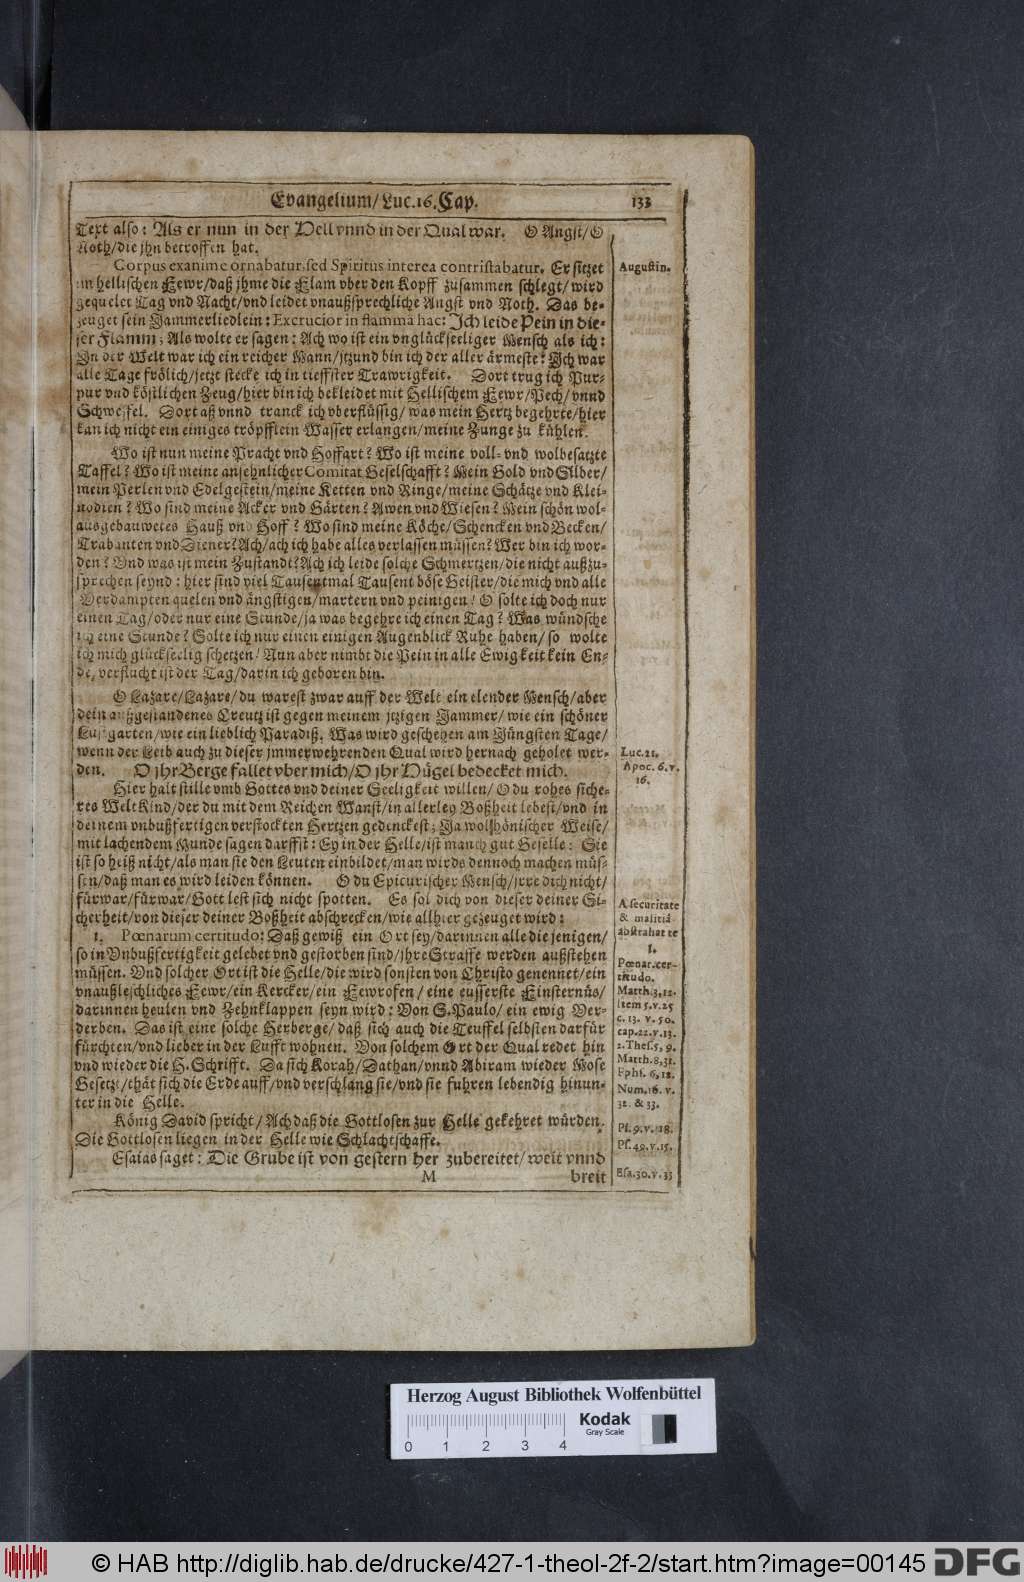 Evangelium/ Luc. 16. Cap. 133
Text also: Als er nun in der Hell vnnd in der Qual war. O Angst/ O
Noth/ die jhn betroffen hat.
Corpus exanime ornabatur, sed Spiritus interea contristabatur. Er sitzet
im hellischen Fewr/ daß jhme die Flam vber den Kopff zusammen schlegt/ wird
gequelet Tag vnd Nacht/ vnd leidet vnaußsprechliche Angst vnd Noth. Das be-
zeuget sein Jammerliedlein: Excrucior in flamma hac: Ich leide Pein in die-
ser Flamm; Als wolte er sagen: Ach wo ist ein vnglückseeliger Mensch als ich:
In der Welt war ich ein reicher Mann/ jtzund bin ich der aller ärmeste: Ich war
alle Tage frölich/ jetzt stecke ich in tieffster Trawrigkeit. Dort trug ich Pur-
pur vnd köstlichen Zeug/ hier bin ich bekleidet mit Hellischem Fewr/ Pech/ vnnd
Schwefel. Dort aß vnnd tranck ich vberflüssig/ was mein Hertz begehrte/ hier
kan ich nicht ein einiges tröpfflein Wasser erlangen/ meine Zunge zu kühlen.
Wo ist nun meine Pracht vnd Hoffart? Wo ist meine voll- vnd wolbesatzte
Taffel? Wo ist meine ansehnlicher Comitat Geselschafft? Mein Gold vnd Silber/
mein Perlen vnd Edelgestein/ meine Ketten vnd Ringe/ meine Schätze vnd Klei-
nodien? Wo sind meine Acker vnd Gärten? Awen vnd Wiesen? Mein schön wol-
ausgebauwetes Hauß vnd Hoff? Wo sind meine Köche/ Schencken vnd Becken/
Trabanten vnd Diener? Ach/ ach ich habe alles verlassen müssen? Wer bin ich wor-
den? Vnd was ist mein Zustandt? Ach ich leide solche Schmertzen/ die nicht außzu-
sprechen seynd: hier sind viel Tausentmal Tausent böse Geister/ die mich vnd alle
Verdampten quelen vnd ängstigen/ martern vnd peinigen! O solte ich doch nur
einen Tag/ oder nur eine Stunde/ ja was begehre ich einen Tag? Was wündsche
ich eine Stunde? Solte ich nur einen einigen Augenblick Ruhe haben/ so wolte
ich mich glückseelig schetzen! Nun aber nimbt die Pein in alle Ewigkeit kein En-
de, verflucht ist der Tag/ darin ich geboren bin.
O Lazare/ Lazare/ du warest zwar auff der Welt ein elender Mensch/ aber
dein außgestandenes Creutz ist gegen meinem jtzigen Jammer/ wie ein schöner
Lustgarten/ wie ein lieblich Paradiß. Was wird geschehen am Jüngsten Tage/
wenn der Leib auch zu dieser jmmerwehrenden Qual wird hernach geholet wer-
den. O jhr Berge fallet vber mich/ O jhr Hügel bedecket mich.
Hier halt stille vmb Gottes vnd deiner Seeligkeit willen/ O du rohes siche-
res WeltKind/ der du mit dem Reichen Wanst/ in allerley Boßheit lebest/ vnd in
deinem vnbußfertigen verstockten Hertzen gedenckest; Ja wol hönischer Weise/
mit lachendem Munde sagen darffst: Ey in der Helle/ ist manch gut Geselle: Sie
ist so heiß nicht/ als man sie den Leuten einbildet/ man wirds dennoch machen müs-
sen/ daß man es wird leiden können. O du Epicurischer Mensch/ jrre dich nicht/
fürwar/ fürwar/ Gott lest sich nicht spotten. Es sol dich von dieser deiner Si-
cherheit/ von dieser deiner Boßheit abschrecken/ wie allhier gezeuget wird:
1. Pœnarum certitudo: Daß gewiß ein Ort sey/ darinnen alle die jenigen/
so in Vnbußfertigkeit gelebet vnd gestorben sind/ jhre Straffe werden außstehen
müssen. Vnd solcher Ort ist die Helle/ die wird sonsten von Christo genennet/ ein
vnaußleschliches Fewr/ ein Kercker/ ein Fewrofen/ eine eusserste Finsternüs/
darinnen heulen vnd Zehnklappen seyn wird: Von S. Paulo/ ein ewig Ver-
derben. Das ist eine solche Herberge/ daß sich auch die Teuffel selbsten darfür
fürchten/ vnd lieber in der Lufft wohnen. Von solchem Ort der Qual redet hin
vnd wieder die H. Schrifft. Da sich Korah/ Dathan/ vnnd Abiram wieder Mose
Gesetzt/ thät sich die Erde auff/ vnd verschlang sie/ vnd sie fuhren lebendig hinun-
ter in die Helle.
König David spricht/ Ach daß die Gottlosen zur Helle gekehret würden.
Die Gottlosen liegen in der Helle wie Schlachtschaffe.
Esaias saget: Die Grube ist von gestern her zubereitet/ weit vnnd
M breit
Augustin.
Luc. 21.
Apoc. 6. v.
16.
A securitate
& malitiâ
abstrahat te
1.
Pœnar. cer-
titudo.
Matth. 3, 12.
Item 5. v. 25
c. 13. v. 50.
cap. 22. v. 13.
2. Thes. 5, 9.
Matth. 8, 31.
Ephs. 6, 12.
Num. 16. v.
32. & 33.
Ps. 9. v. 18.
Ps. 49. v. 15.
Esa. 30. v. 33
Herzog August Bibliothek Wolfenbüttel
Kodak
Gray Scale
0 1 2 3 4
© HAB http://diglib.hab.de/drucke/427-1-theol-2f-2/start.htm?image=00145 DFG